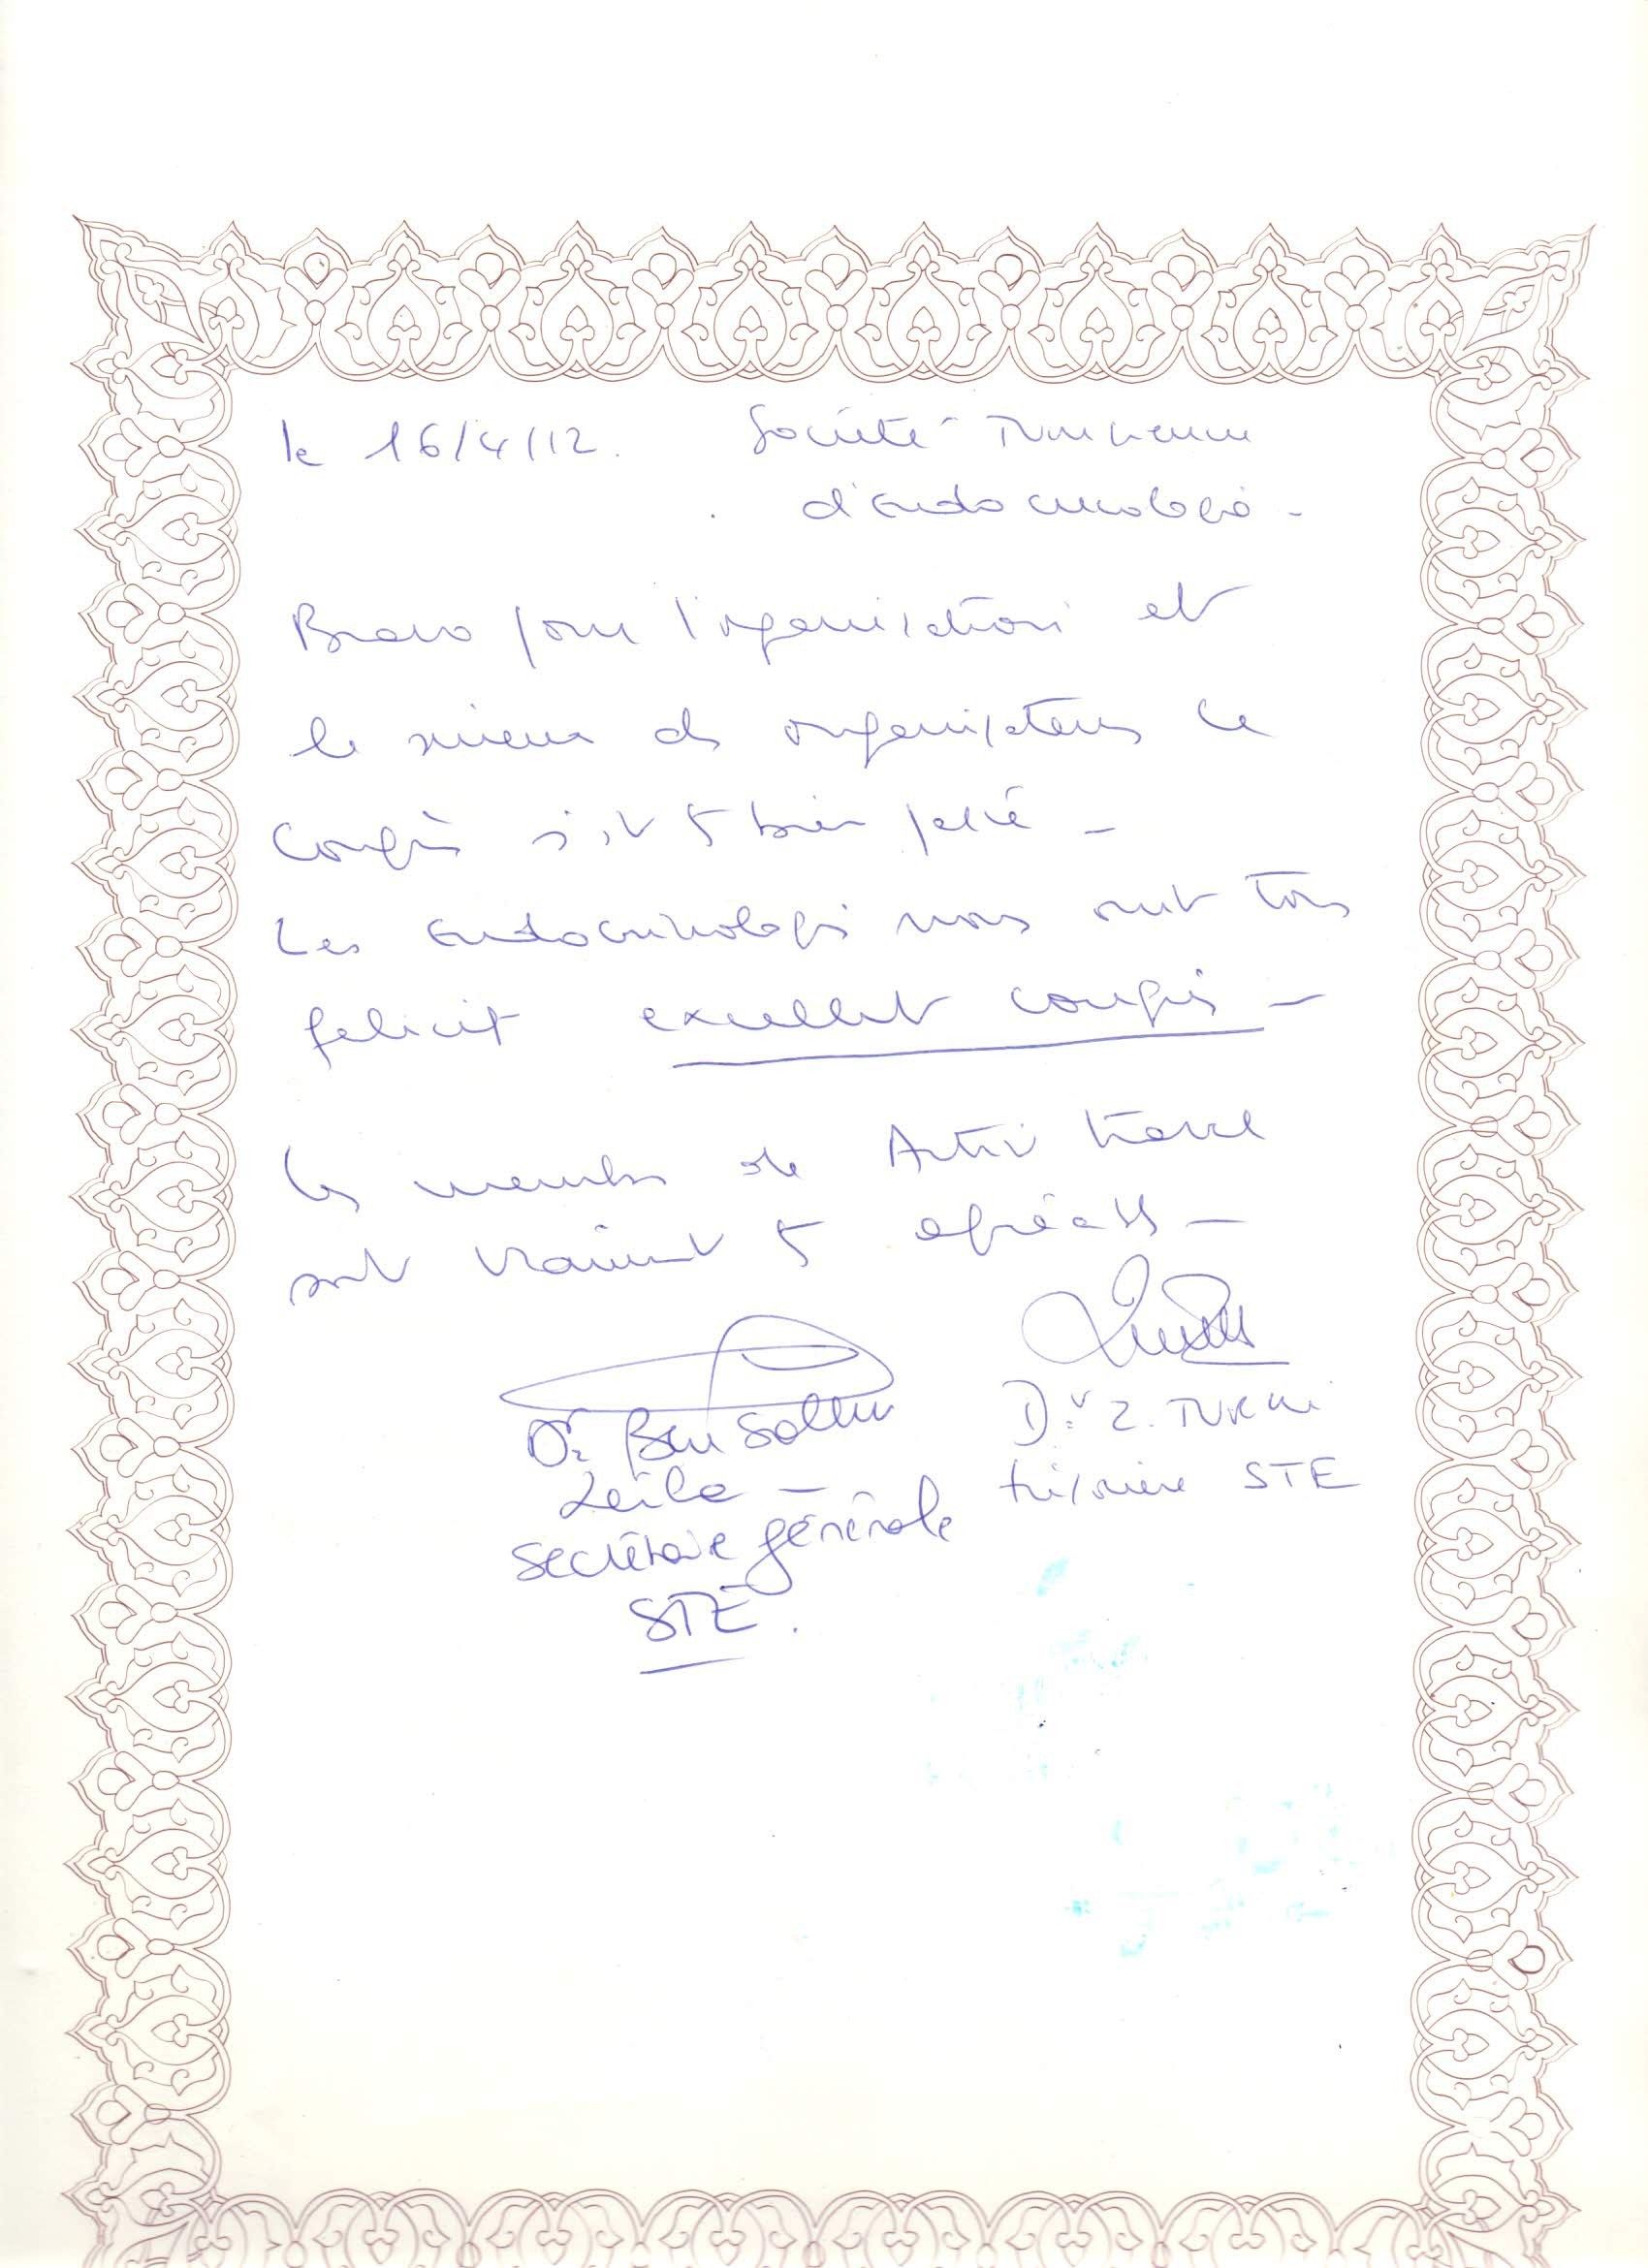 le 16/4/12. Société Tunisienne
d'Endocrinologie -
Bravo pour l'organisation et
le mieux des organisateurs Le
Congrès s'est bien passé -
Les Endocrinologis nous ont tous
felicit excellent congrès -
Les membres de Activ Travel
sont vraiment appréciés -
Dr Ben Salem Dr Z. TURKI
Leila - trésorière STE
Secrétaire générale
STE.